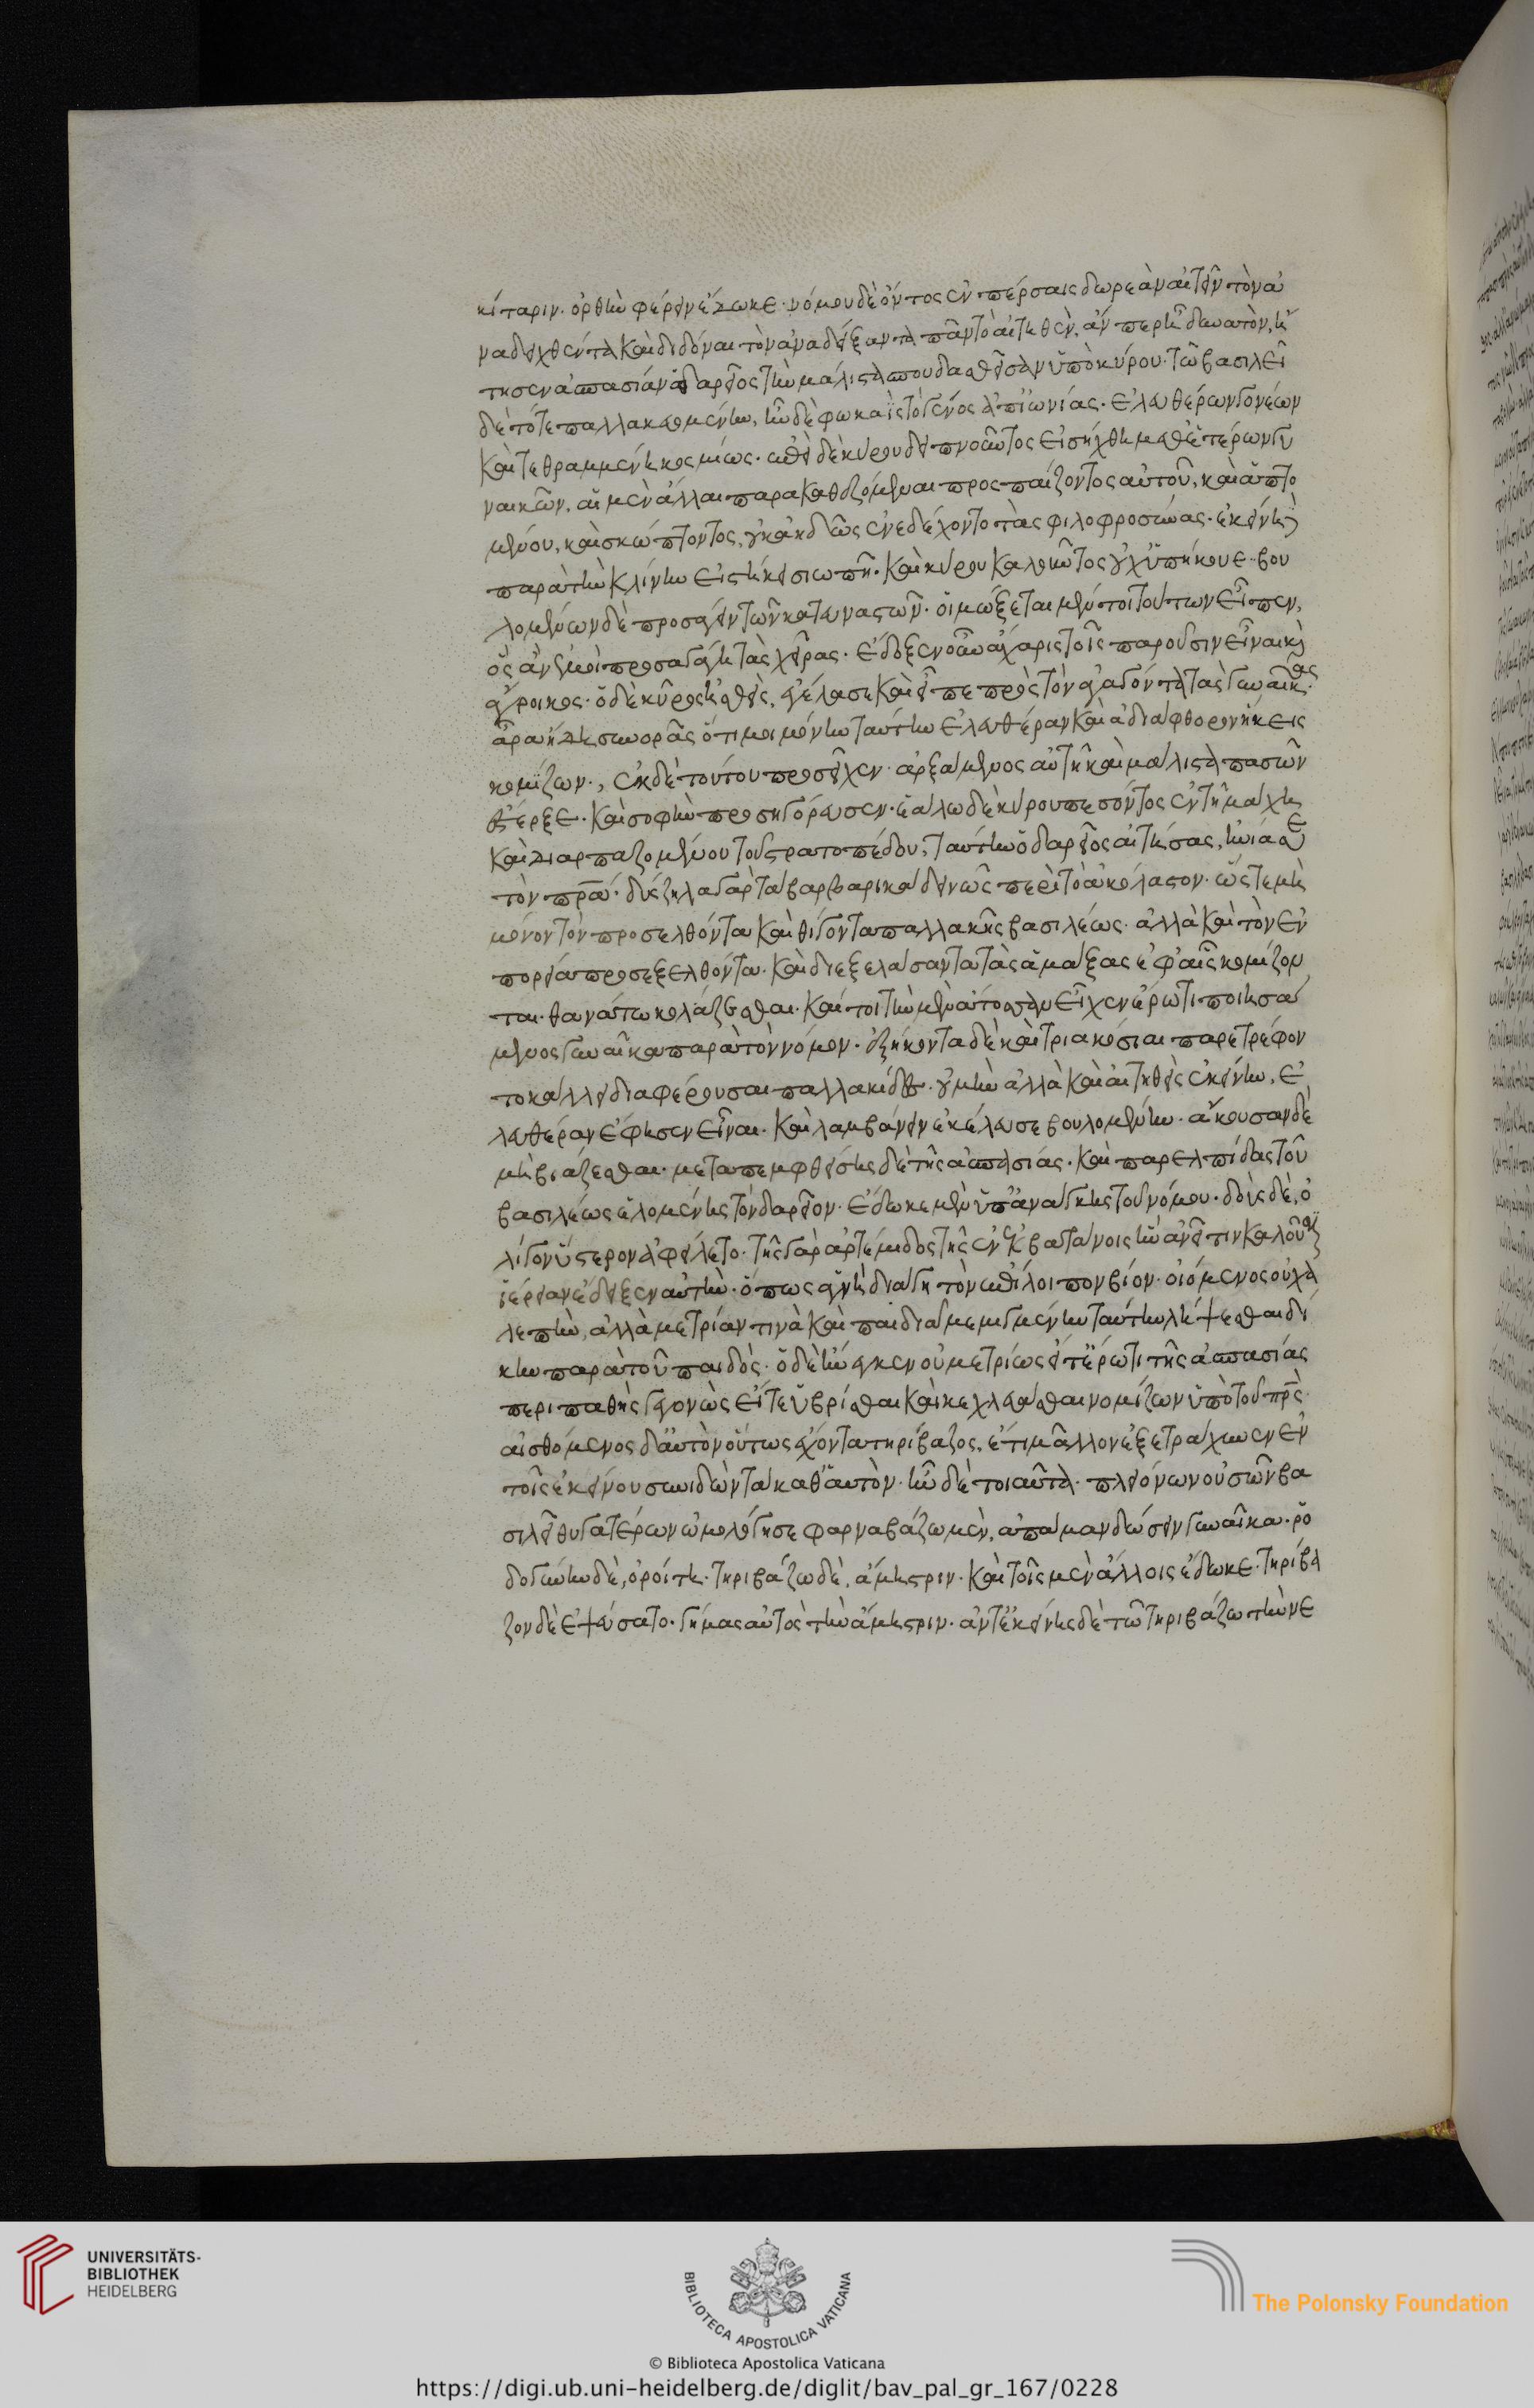 κίταριν. ὀρθὴν φέρειν ἔδωκε. νόμου δὲ ὄντος ἐν πέρσαις δωρεὰν αἰτεῖν τὸν ἀ
ναδειχθέντα καὶ διδόναι τὸν ἀναδείξαντα πᾶν τὸ αἰτηθὲν, ἄν περ ᾖ δυνατὸν, ᾔ
τησεν ἀσπασίαν ὁ δαρεῖος τὴν μάλιστα σπουδασθεῖσαν ὑπὸ κύρου. τῶ βασιλεῖ
δὲ τότε παλλακευομένην, ἦν δὲ φωκαῒς τὸ γένος ἀπ' ἰωνίας. ἐλευθέρων γονέων
καὶ τεθραμμένη κοσμίως. ἐπεὶ δὲ κύρου δειπνοῦντος εἰσήχθη μεθ' ἑτέρων γυ
ναικῶν, αἱ μὲν ἄλλαι παρακαθεζόμεναι προσπαίζοντος αὐτοῦ, καὶ ἁπτο
μένου, καὶ σκώπτοντος, οὐκ ἀηδῶς ἐνεδέχοντο τὰς φιλοφροσύνας. ἐκείνη δὲ
παρὰ τὴν κλίνην εἱστήκει σιωπῆ. καὶ κύρου καλοῦντος οὐχ ὑπήκουε. βου
λομένων δὲ προσάγειν τῶν κατευναστῶν. οἰμώξεται μέν τοι τούτων εἶπεν,
ὃς ἂν ἐμοὶ προσαγάγη τὰς χεῖρας. ἔδοξεν οὖν ἄχαρις τοῖς παροῦσιν εἶναι καὶ
ἄγροικος. ὁ δὲ κῦρος ἡσθεὶς, ἐγέλασε καὶ εἶπε πρὸς τὸν ἀγαγόντα τὰς γυναῖκας.
ἆρα ἤδη συνορᾶς ὅτι μοι μόνην ταύτην ἐλευθέραν καὶ ἀδιάφθορον ἥκεις
κομίζων., ἐκ δὲ τούτου προσεῖχεν. ἀρξάμενος αὐτῆ καὶ μάλιστα πασῶν
ἔστερξε. καὶ σοφὴν προσηγόρευσεν. ἑάλω δὲ κύρου πεσόντος ἐν τῆ μάχη
καὶ διαρπαζομένου τοῦ στρατοπέδου, ταύτην ὁ δαρεῖος αἰτήσας, ἠνίασε
τὸν πρα. δύσζηλα γὰρ τὰ βαρβαρικὰ δεινῶς περὶ τὸ ἀκόλαστον. ὥστε μὴ
μόνον τὸν προσελθόντα καὶ θιγόντα παλλακῆς βασιλέως. ἀλλὰ καὶ τὸν ἐν
πορεία προεξελθόντα. καὶ διεξελάσαντα τὰς ἁμάξας ἐφ' αἷς κομίζον
ται. θανάτω κολάζεσθαι. καί τοι τὴν μὲν ἄτοσσαν εἶχεν ἔρωτι ποιησά
μενος γυναῖκα παρὰ τὸν νόμον. ἑξήκοντα δὲ καὶ τριακόσιαι παρετρέφον
το κάλλει διαφέρουσαι παλλακίδες. οὐ μὴν ἀλλὰ καὶ αἰτηθεὶς ἐκείνην, ἐ
λευθέραν ἔφησεν εἶναι. καὶ λαμβάνειν ἐκέλευσε βουλομένην. ἄκουσαν δὲ
μὴ βιάζεσθαι. μεταπεμφθείσης δὲ τῆς ἀσπασίας. καὶ παρ' ἐλπίδας τοῦ
βασιλέως ἑλομένης τὸν δαρεῖον. ἔδωκε μὲν ὑπ' ἀνάγκης τοῦ νόμου. δοὺς δὲ, ὀ
λίγον ὕστερον ἀφείλετο. τῆς γὰρ ἀρτέμιδος τῆς ἐν ἐκβατάνοις ἣν ἀνεῖτιν καλοῦσιν
ἱέρειαν ἔδειξεν αὐτὴν. ὅπως ἁγνὴ διάγη τὸν ἐπίλοιπον βίον. οἰόμενος οὐ χα
λεπὴν, ἀλλὰ μετρίαν τινὰ καὶ παιδιᾶ μεμιγμένην ταύτην λήψεσθαι δί
κην παρὰ τοῦ παιδός. ὁ δὲ ἤνεγκεν οὐ μετρίως εἴτ' ἔρωτι τῆς ἀσπασίας
περιπαθὴς γεγονὼς εἴτε ὑβρίσθαι καὶ κεχλευάσθαι νομίζων ὑπὸ τοῦ πρς.
αἰσθόμενος δ' αὐτὸν οὕτως ἔχοντα τηρίβαζος, ἔτι μᾶλλον ἐξετράχυνεν ἐν
τοῖς ἐκείνου συνιδὼν τὰ καθ' αὑτὸν. ἦν δὲ τοιαῦτα. πλειόνων οὐσῶν βα
σιλεῖ θυγατέρων ὡμολόγησε φαρναβάζω μὲν, ἀπάμαν δώσειν γυναῖκα. ῥο
δογούνην δὲ, ὀρόντη. τηριβάζω δὲ, ἄμηστριν. καὶ τοῖς μὲν ἄλλοις ἔδωκε. τηρίβα
ζον δὲ ἐψεύσατο. γήμας αὐτὸς τὴν ἄμηστριν. ἀντ' ἐκείνης δὲ τῶ τηριβάζω τὴν νε
UNIVERSITÄTS-
BIBLIOTHEK
HEIDELBERG
BIBLIOTECA APOSTOLICA VATICANA
The Polonsky Foundation
© Biblioteca Apostolica Vaticana
https://digi.ub.uni-heidelberg.de/diglit/bav_pal_gr_167/0228